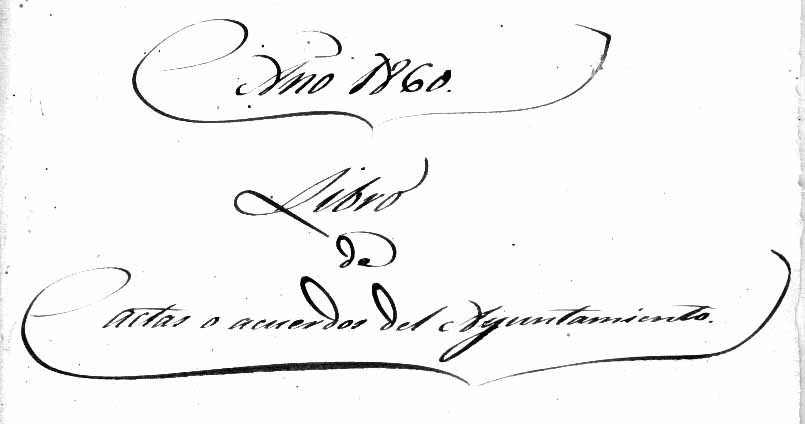 Año 1860.
Libro
de
actas o acuerdos del Ayuntamiento.